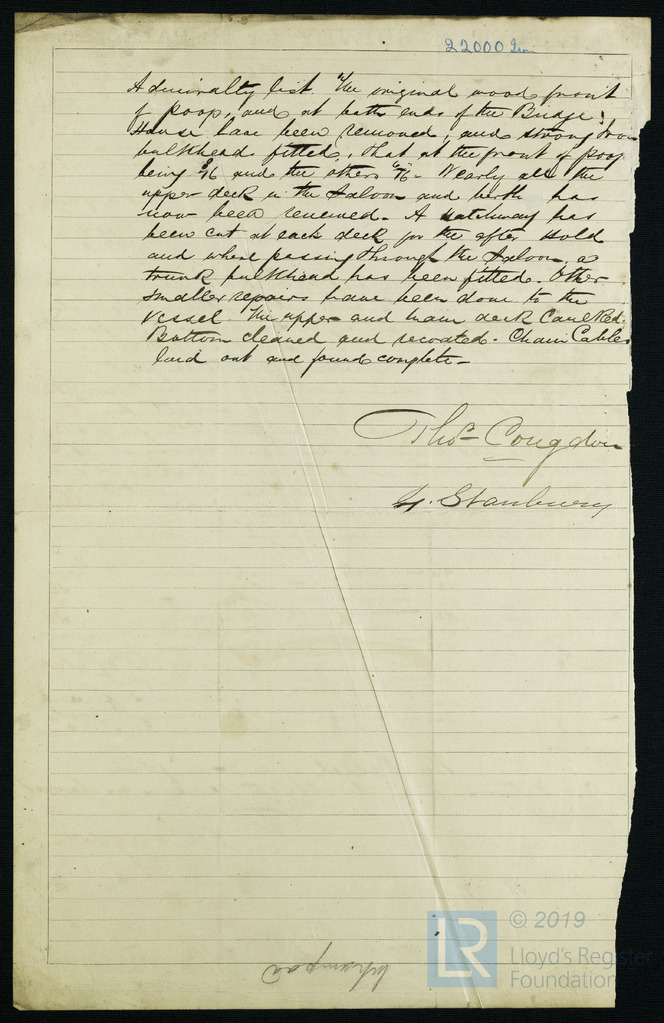 22000 Iron
Admiralty list. The original wood front
of poop, and at both ends of the Bridge
House have been removed, and strong Iron
bulkhead fitted, that at the front of poop
being /16 and the others 6/16. Nearly all the
upper deck in the Saloon and berth has
now been renewed. A hatchway has
been cut at each deck for the after Hold
and where passing through the Saloon, a
trunk bulkhead has been fitted. Other
smaller repairs have been done to the
Vessel. The upper and main deck Caulked.
Bottom cleaned and recoated. Chain Cables
laid out and found complete.
Thos Congdon
H. Stanbury
Whampoa
© 2019
LR
Lloyd's Register
Foundation